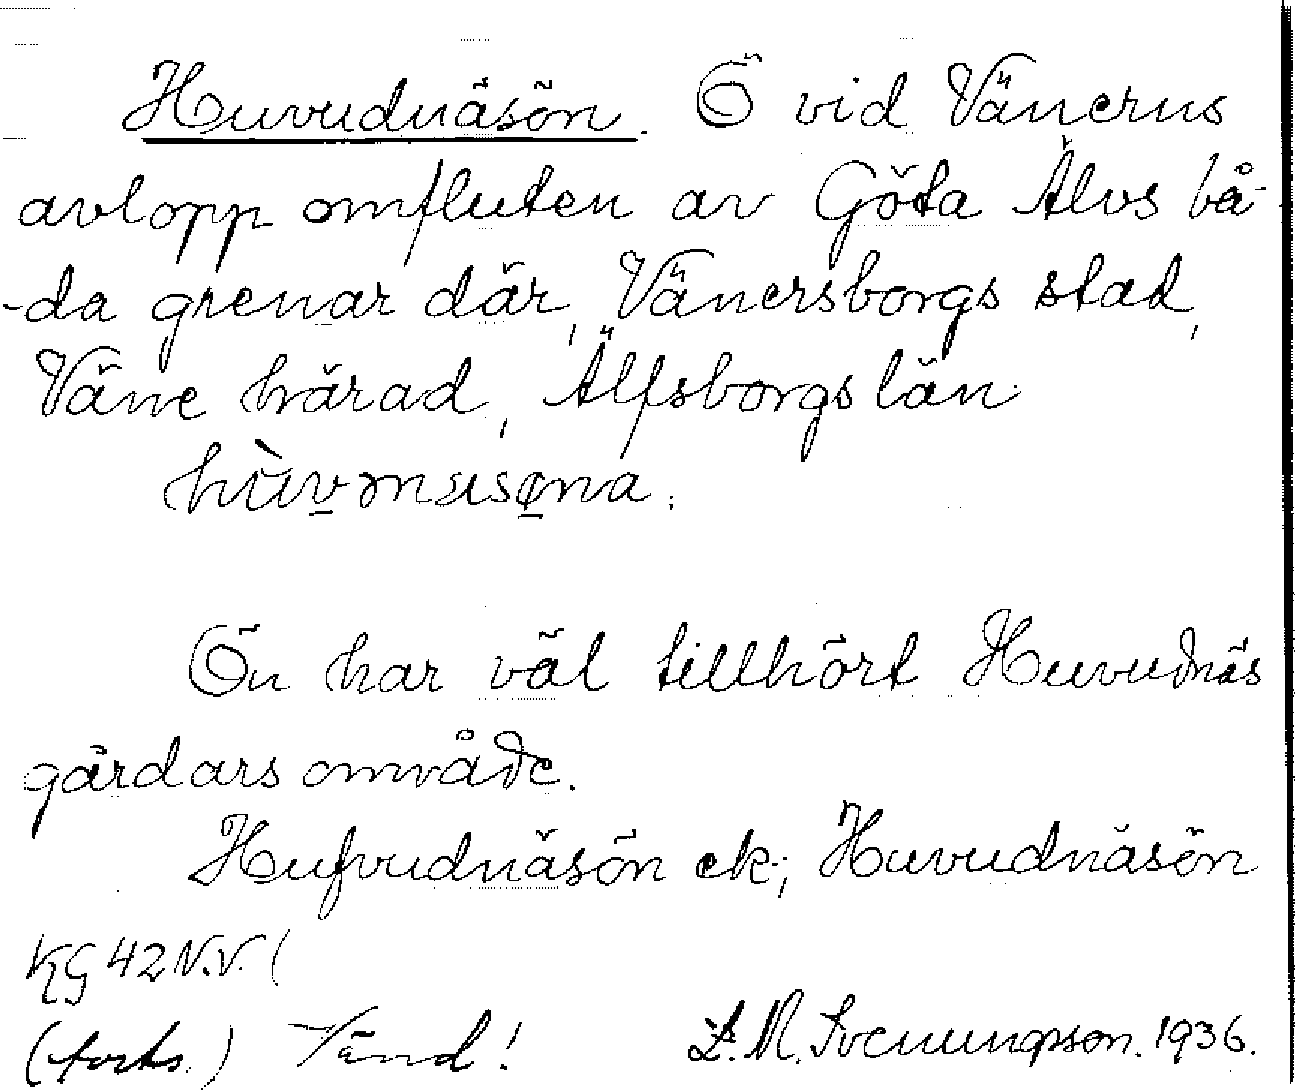 Huvudnäsön. Ö vid Vänerns
avlopp omfluten av Göta Älvs bå-
-da grenar där, Vänersborgs stad,
Väne härad, Älfsborgs län.
Ön har väl tillhört Huvudnäs
gårdars område.
Hufvudnäsön ek; Huvudnäsön
KG 42 N.V. (
(forts.) Vänd! L. M. Svenungsson. 1936.